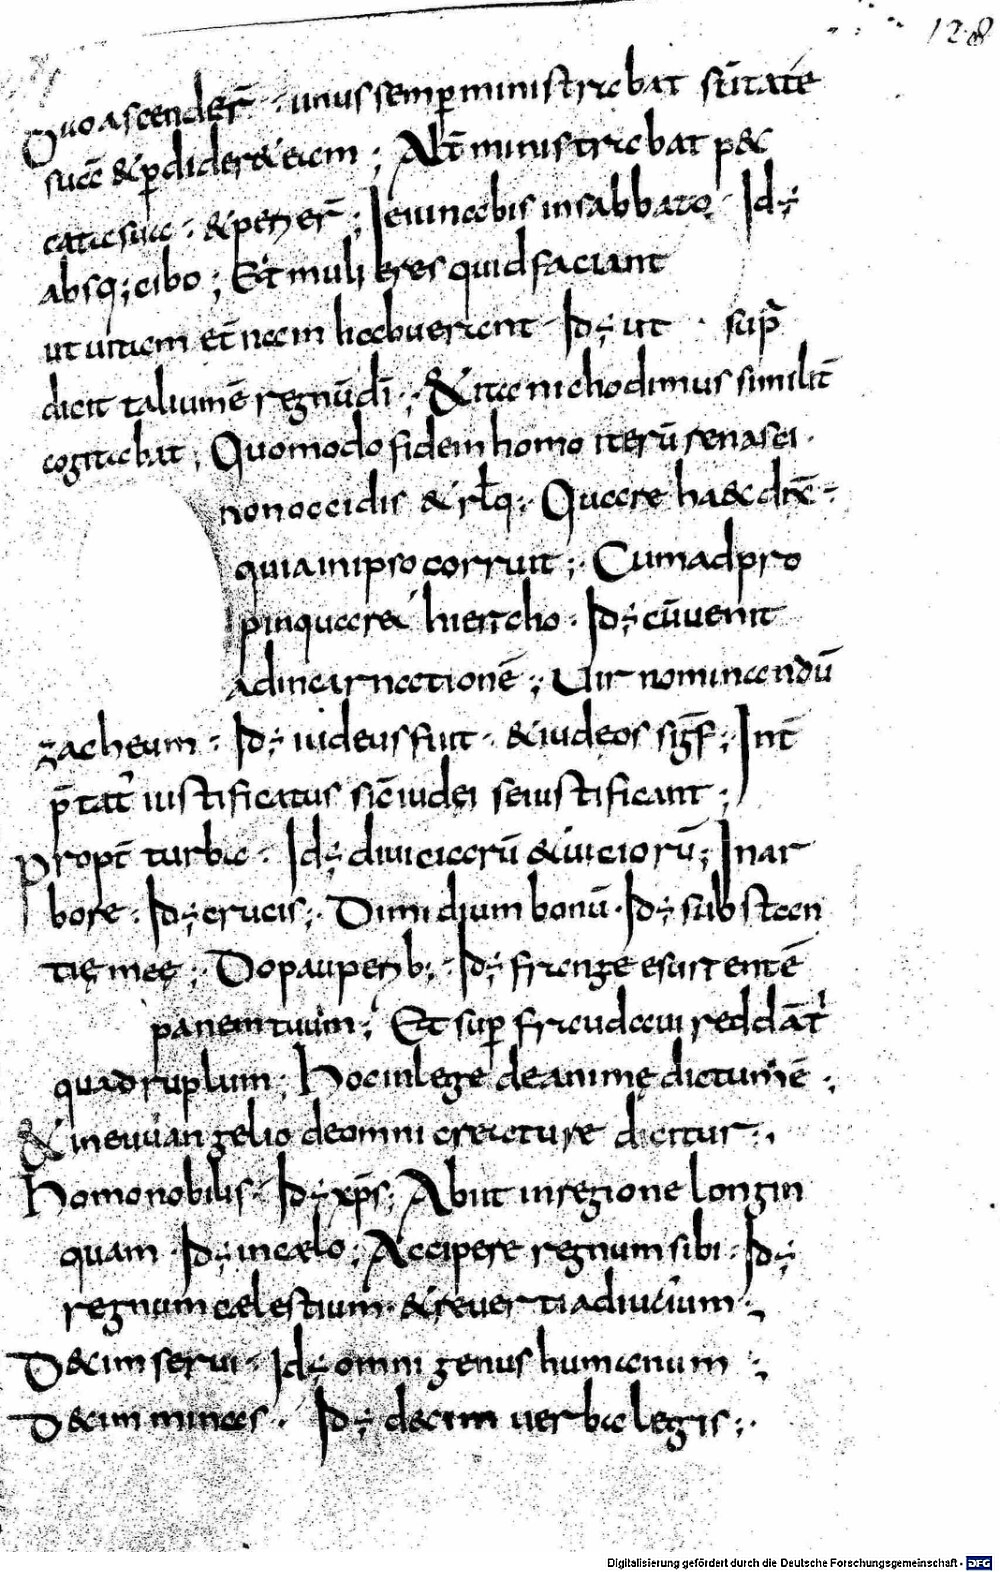 128
Duo ascender̄ · unus semp̱ ministrabat sc̄itatē
suā & ꝑdider& eam ; Alt̄ ministrabat p&
cata sua · & penet̄ ; Ieiuna bis in sabbato · Id ÷
absq; cibo ; Et mulieres quid faciant
ut uitiem et̄ nam habuerant Id ÷ ut · sup̄
dicit talium ē regnū dī ; & ita nichodimus similit̄
cogitabat ; Quomodo fidem homo iterū renasci ·
non occidis & rłq; · Quare ha& dix̄ ·
quia in ipso corruit ; Cum adpro
pinquar& hiericho · Id ÷ cū uenit
ad incarnationē ; Uir nominandū
zacheum · Id ÷ iudeus fuit · & iudeos sigf̄ ; Int̄
p̄tat̄ iustificatus sic̄ iudei se iustificant ;
Propt̄ turba · Id ÷ diuiciarū & uiciorū ; In ar
bore · Id ÷ crucis ; Dimidium bonū · Id ÷ substan
tię meę ; Do pauperib; · Id ÷ frange esurientē
panem tuum ; Et sup̱ fraudaui reddat̄
quadruplum ; Hoc in lege de animę dictum ē ;
& in euuangelio de omni creature dicitur ;
Homo nobilis · Id ÷ xp̄s ; Abiit in regione longin
quam · Id ÷ in cælo ; Accipere regnum sibi · Id ÷
regnum cælestium · & reuerti ad iuditium ;
Decim serui · Id ÷ omni genus humanum ;
Decim minas · Id ÷ decim uerba legis ;
Digitalisierung gefördert durch die Deutsche Forschungsgemeinschaft - DFG